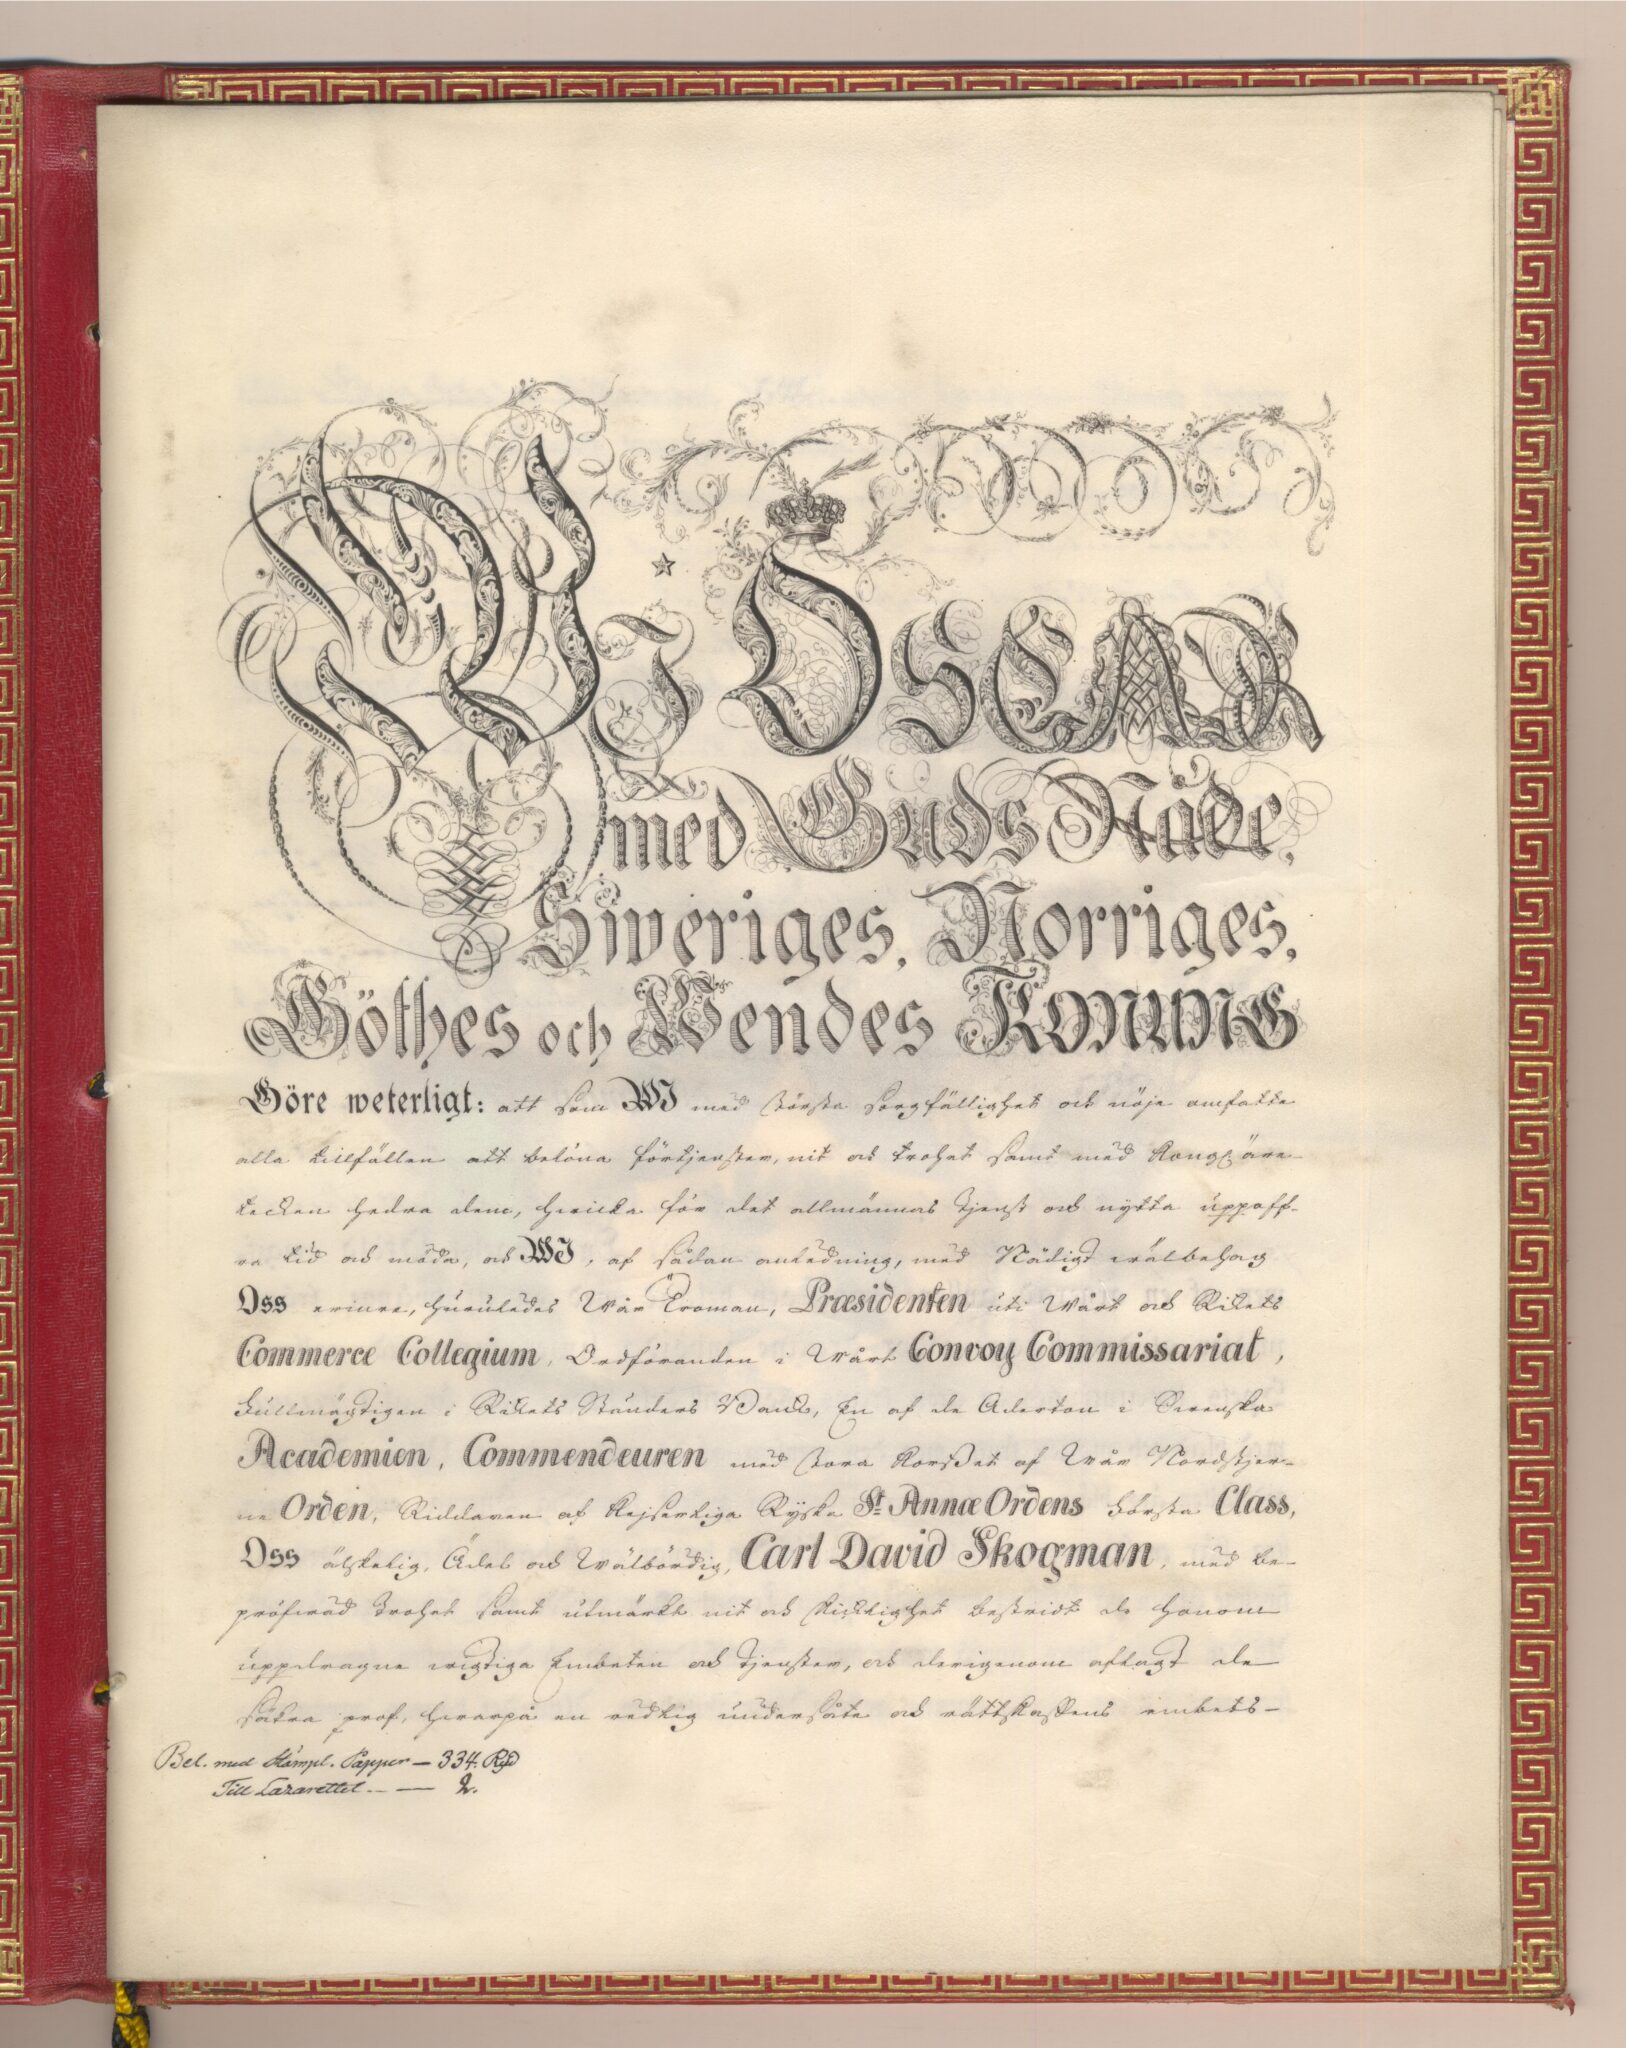 Wi OSCAR
med Guds Nåde,
Sweriges, Norriges,
Göthes och Wendes KONUNG
Göre weterligt: att som WI med största sorgfällighet och nöje omfatte
alla tillfällen att belöna förtjenster, nit och trohet samt med Kongl. äre-
tecken hedra dem, hwilka för det allmännas tjenst och nytta uppoff-
ra tid och möda, och WI, af sådan anledning, med Nådigt wälbehag
Oss erinre, huruledes Wår Troman, Præsidenten uti Wårt och Rikets
Commerce Collegium, Ordföranden i Wårt Convoy Commissariat,
Fullmägtigen i Rikets Ständers Bank, En af de Aderton i Swenska
Academien, Commendeuren med stora Korsset af Wår Nordstjer-
ne Orden, Riddaren af Kejserliga Ryska St. Annæ Ordens Första Class,
Oss älskelig, Ädel och Wälbördig, Carl David Skogman, med be-
pröfwad trohet samt utmärkt nit och skicklighet bestridt de honom
uppdragne wigtiga Embeten och tjenster, och derigenom aflagt de
säkra prof, hwarpå en redlig undersåte och rättskaffens embets-
Bel. med Stämpl. Papper — 334. Rgd
Till Lazarettet — 2.